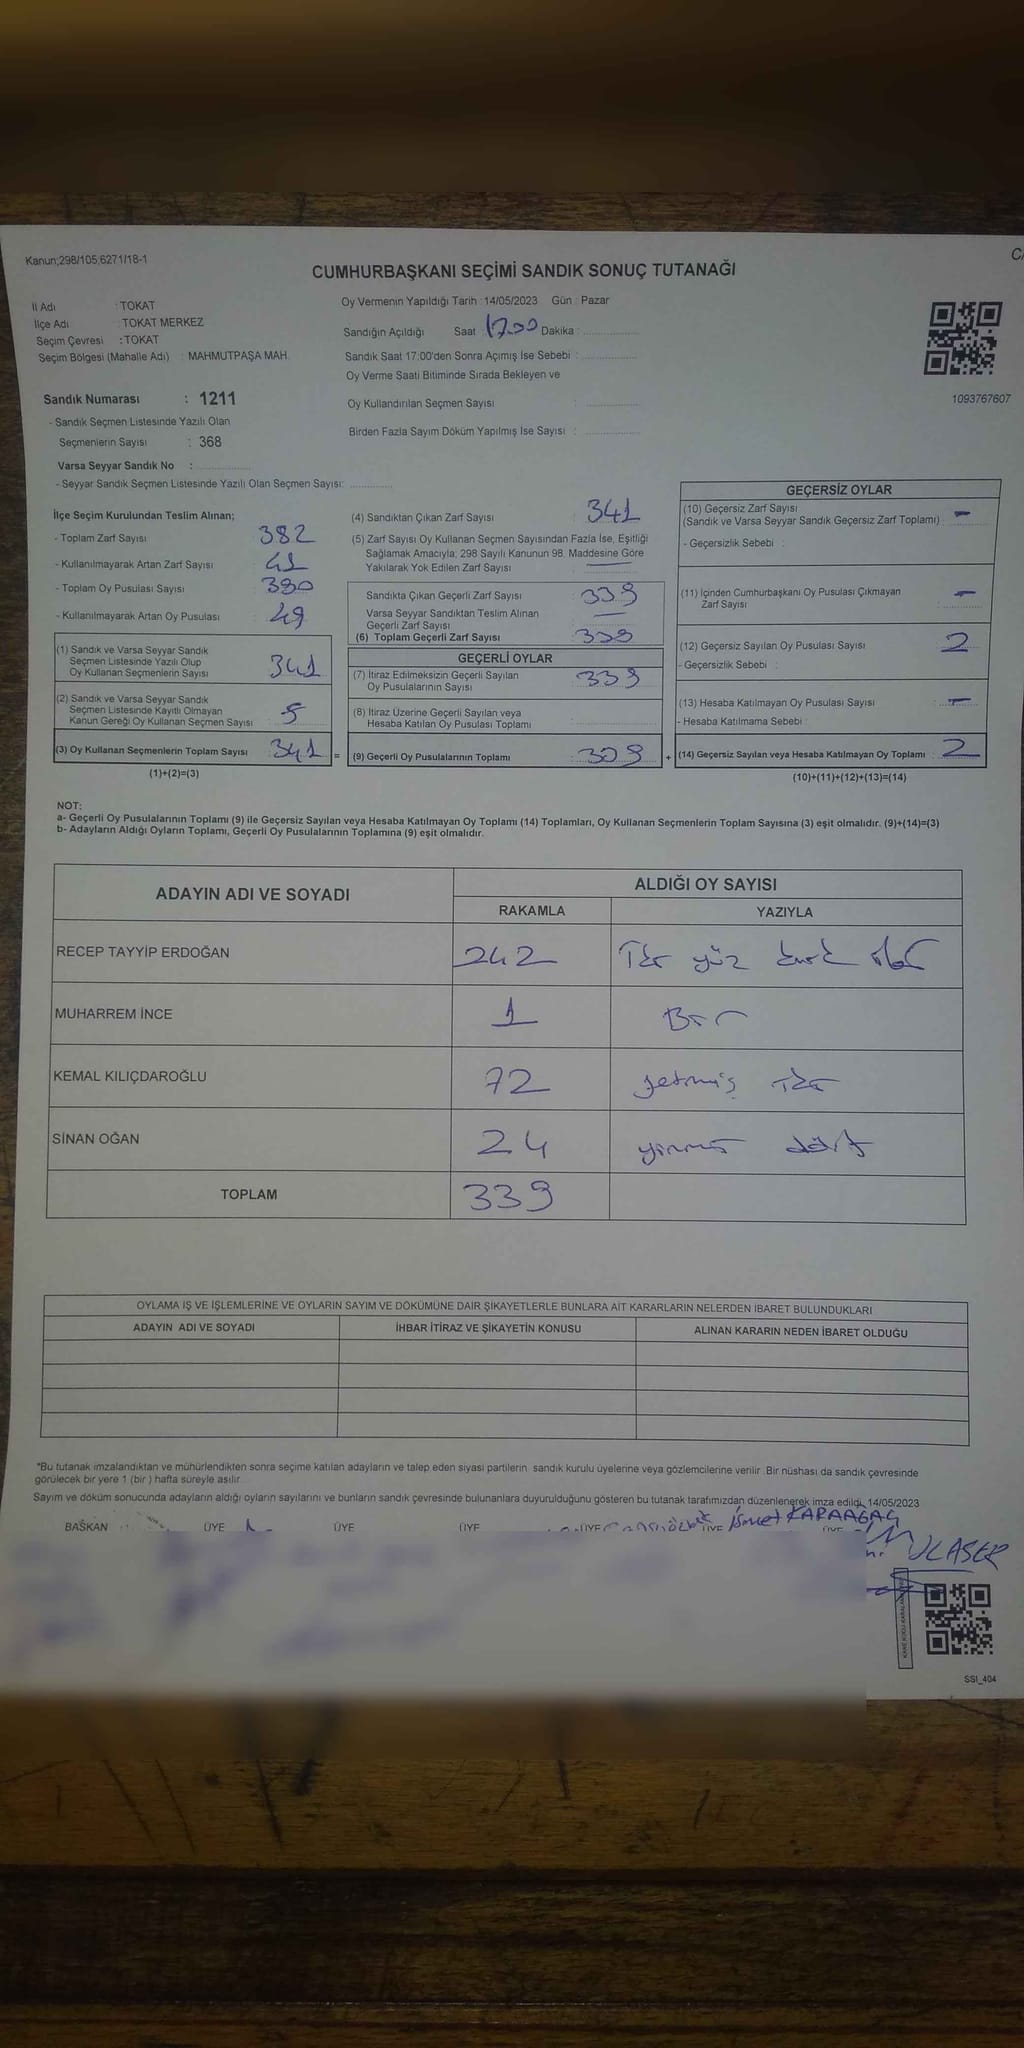 Kanun;298/105;6271/18-1
CUMHURBAŞKANI SEÇİMİ SANDIK SONUÇ TUTANAĞI
İl Adı : TOKAT
İlçe Adı : TOKAT MERKEZ
Seçim Çevresi : TOKAT
Seçim Bölgesi (Mahalle Adı) : MAHMUTPAŞA MAH.
Oy Vermenin Yapıldığı Tarih :14/05/2023 Gün : Pazar
Sandığın Açıldığı Saat 17.00 Dakika :
Sandık Saat 17:00'den Sonra Açımış İse Sebebi :
Oy Verme Saati Bitiminde Sırada Bekleyen ve
Oy Kullandırılan Seçmen Sayısı :
Birden Fazla Sayım Döküm Yapılmış İse Sayısı :
1093767607
Sandık Numarası : 1211
- Sandık Seçmen Listesinde Yazılı Olan
Seçmenlerin Sayısı : 368
Varsa Seyyar Sandık No :
- Seyyar Sandık Seçmen Listesinde Yazılı Olan Seçmen Sayısı:
İlçe Seçim Kurulundan Teslim Alınan;
- Toplam Zarf Sayısı 382
- Kullanılmayarak Artan Zarf Sayısı 41
- Toplam Oy Pusulası Sayısı
- Kullanılmayarak Artan Oy Pusulası 49
(1) Sandık ve Varsa Seyyar Sandık
Seçmen Listesinde Yazılı Olup
Oy Kullanan Seçmenlerin Sayısı 341
(2) Sandık ve Varsa Seyyar Sandık
Seçmen Listesinde Kayıtlı Olmayan
Kanun Gereği Oy Kullanan Seçmen Sayısı
(3) Oy Kullanan Seçmenlerin Toplam Sayısı 341 =
(1)+(2)=(3)
(4) Sandıktan Çıkan Zarf Sayısı : 341
(5) Zarf Sayısı Oy Kullanan Seçmen Sayısından Fazla İse, Eşitliği
Sağlamak Amacıyla; 298 Sayılı Kanunun 98. Maddesine Göre
Yakılarak Yok Edilen Zarf Sayısı : —
Sandıkta Çıkan Geçerli Zarf Sayısı : 339
Varsa Seyyar Sandıktan Teslim Alınan
Geçerli Zarf Sayısı : —
(6) Toplam Geçerli Zarf Sayısı : 339
GEÇERLİ OYLAR
(7) İtiraz Edilmeksizin Geçerli Sayılan
Oy Pusulalarının Sayısı : 339
(8) İtiraz Üzerine Geçerli Sayılan veya
Hesaba Katılan Oy Pusulası Toplamı :
(9) Geçerli Oy Pusulalarının Toplamı : 339 +
GEÇERSİZ OYLAR
(10) Geçersiz Zarf Sayısı
(Sandık ve Varsa Seyyar Sandık Geçersiz Zarf Toplamı) : —
- Geçersizlik Sebebi :
(11) İçinden Cumhurbaşkanı Oy Pusulası Çıkmayan
Zarf Sayısı : —
(12) Geçersiz Sayılan Oy Pusulası Sayısı : 2
- Geçersizlik Sebebi :
(13) Hesaba Katılmayan Oy Pusulası Sayısı : —
- Hesaba Katılmama Sebebi :
(14) Geçersiz Sayılan veya Hesaba Katılmayan Oy Toplamı : 2
(10)+(11)+(12)+(13)=(14)
NOT:
a- Geçerli Oy Pusulalarının Toplamı (9) ile Geçersiz Sayılan veya Hesaba Katılmayan Oy Toplamı (14) Toplamları, Oy Kullanan Seçmenlerin Toplam Sayısına (3) eşit olmalıdır. (9)+(14)=(3)
b- Adayların Aldığı Oyların Toplamı, Geçerli Oy Pusulalarının Toplamına (9) eşit olmalıdır.
ADAYIN ADI VE SOYADI ALDIĞI OY SAYISI
RAKAMLA YAZIYLA
RECEP TAYYİP ERDOĞAN 242 İki yüz kırk iki
MUHARREM İNCE 1 Bir
KEMAL KILIÇDAROĞLU 72 yetmiş iki
SİNAN OĞAN 24 yirmi dört
TOPLAM 339
OYLAMA İŞ VE İŞLEMLERİNE VE OYLARIN SAYIM VE DÖKÜMÜNE DAİR ŞİKAYETLERLE BUNLARA AİT KARARLARIN NELERDEN İBARET BULUNDUKLARI
ADAYIN ADI VE SOYADI İHBAR İTİRAZ VE ŞİKAYETİN KONUSU ALINAN KARARIN NEDEN İBARET OLDUĞU
*Bu tutanak imzalandıktan ve mühürlendikten sonra seçime katılan adayların ve talep eden siyasi partilerin sandık kurulu üyelerine veya gözlemcilerine verilir. Bir nüshası da sandık çevresinde
görülecek bir yere 1 (bir ) hafta süreyle asılır.
Sayım ve döküm sonucunda adayların aldığı oyların sayılarını ve bunların sandık çevresinde bulunanlara duyurulduğunu gösteren bu tutanak tarafımızdan düzenlenerek imza edildi. 14/05/2023
İsmet KARAAĞAÇ
BAŞKAN ÜYE ÜYE ÜYE ÜYE ÜYE ÜYE
SSI_404